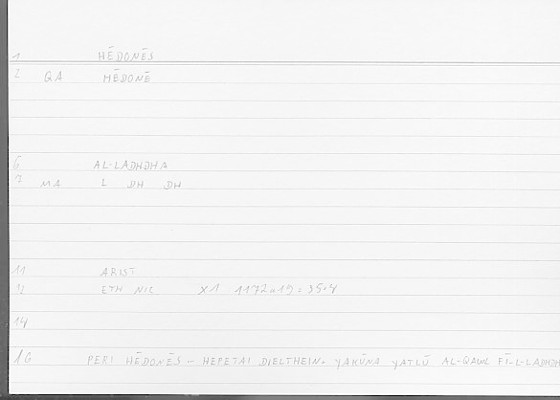 1 HĒDONĒS
2 QA HĒDONĒ
6 AL-LADHDHA
7 MA L DH DH
11 ARIST
12 ETH NIC X1 1172a19: 350,4
14
16 PERI HĒDONĒS – HEPETAI DIELTHEIN. yAKŪNA yATLŪ AL-QAWL FĪ-L-LADHDH